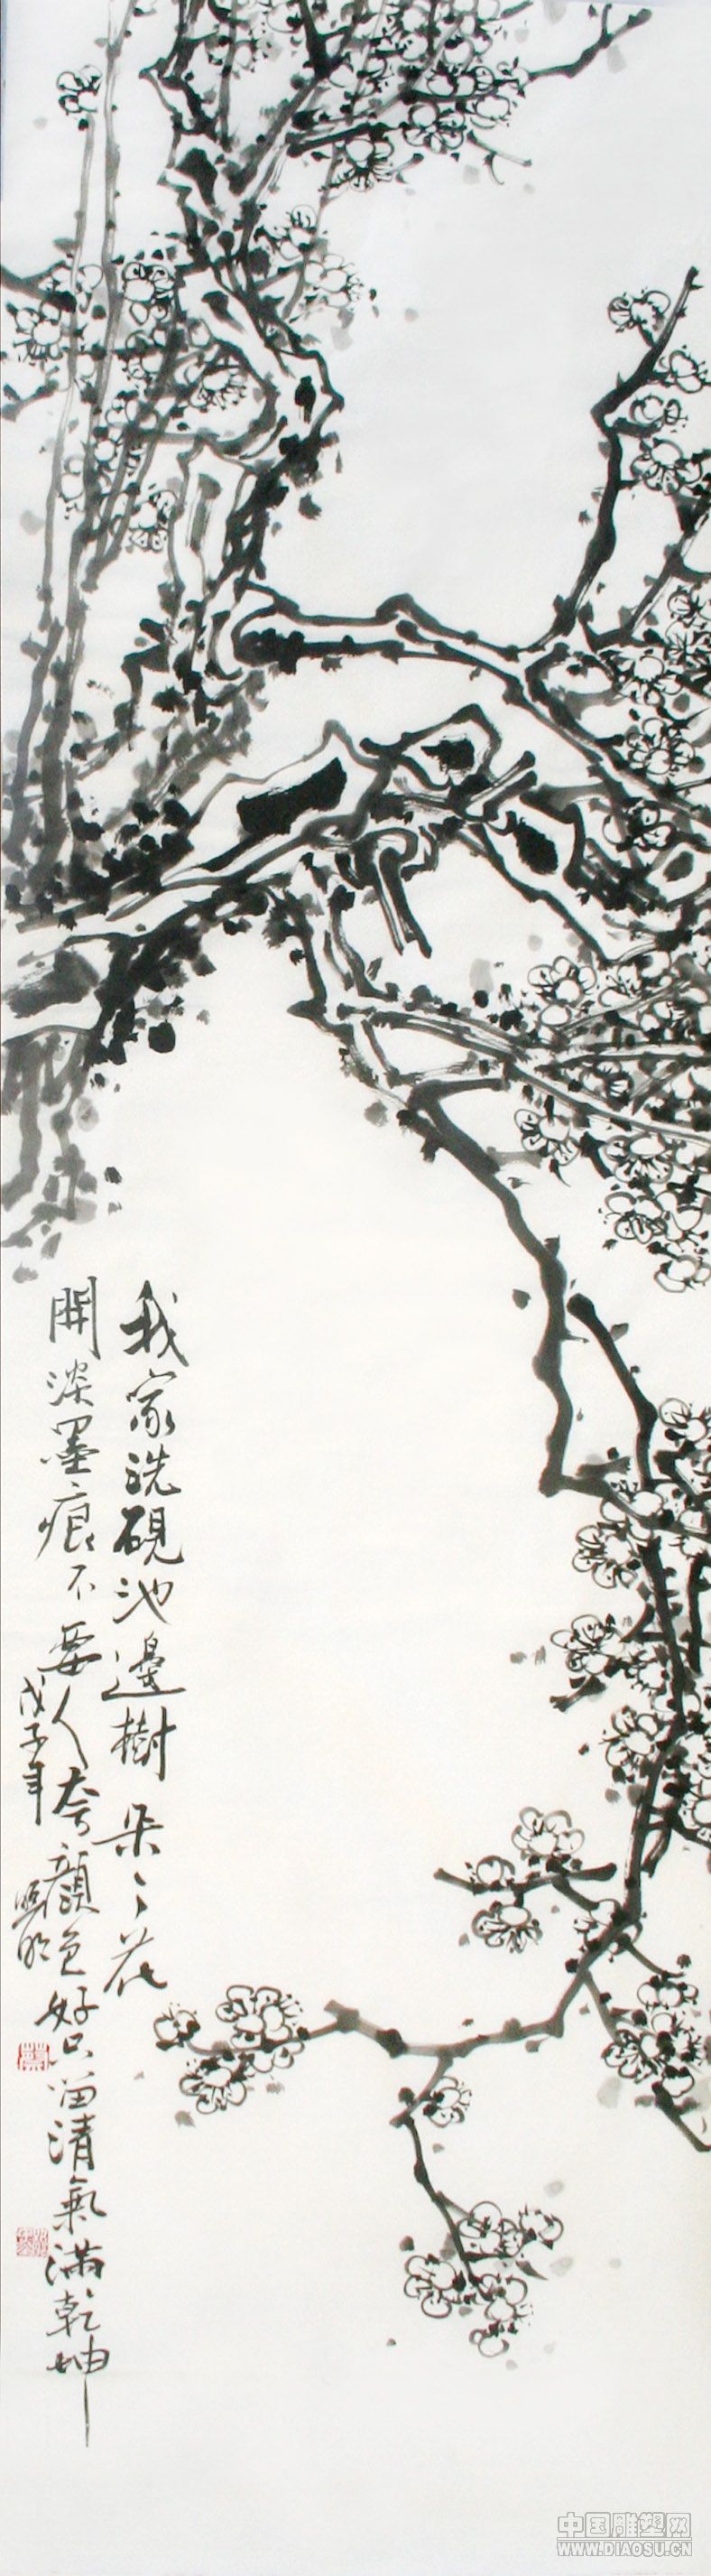 我家洗硯池邊樹朵々花
開淡墨痕不要人夸顏色好只留清氣滿乾坤
戊子年
中国雕塑网
WWW.DIAOSU.CN